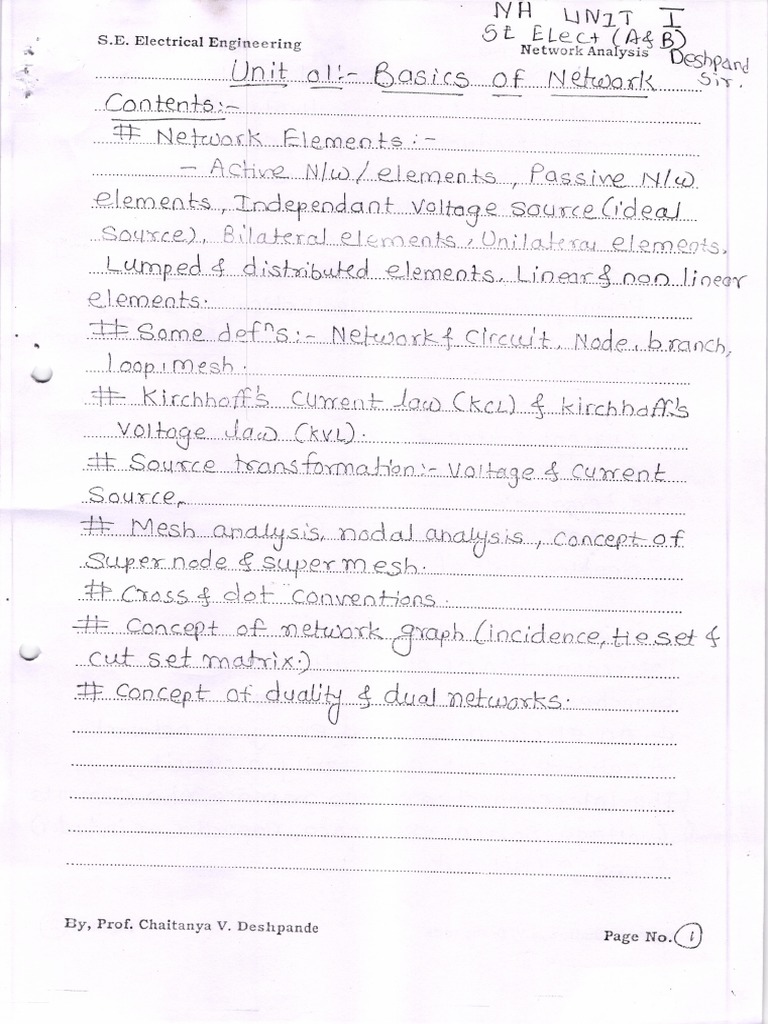 NH UNIT I
S.E. Electrical Engineering
SE Elect (A&B)
Network Analysis
Deshpand
Sir.
Unit 01:- Basics of Network
Contents:-
# Network Elements:-
- Active N/w/elements, Passive N/w
elements, Independant voltage source (ideal
source), Bilateral elements, Unilateral elements,
Lumped & distributed elements, Linear & non linear
elements.
# Some defⁿs:- Network & Circuit, Node, branch,
loop, mesh.
# Kirchhoff's Current law (KCL) & Kirchhoff's
Voltage law (KVL).
# Source transformation:- Voltage & Current
Source,
# Mesh analysis, nodal analysis, Concept of
Supernode & supermesh.
# Cross & dot conventions.
# Concept of network graph (incidence, tie set &
cut set matrix.)
# Concept of duality & dual networks.
By, Prof. Chaitanya V. Deshpande
Page No. 1